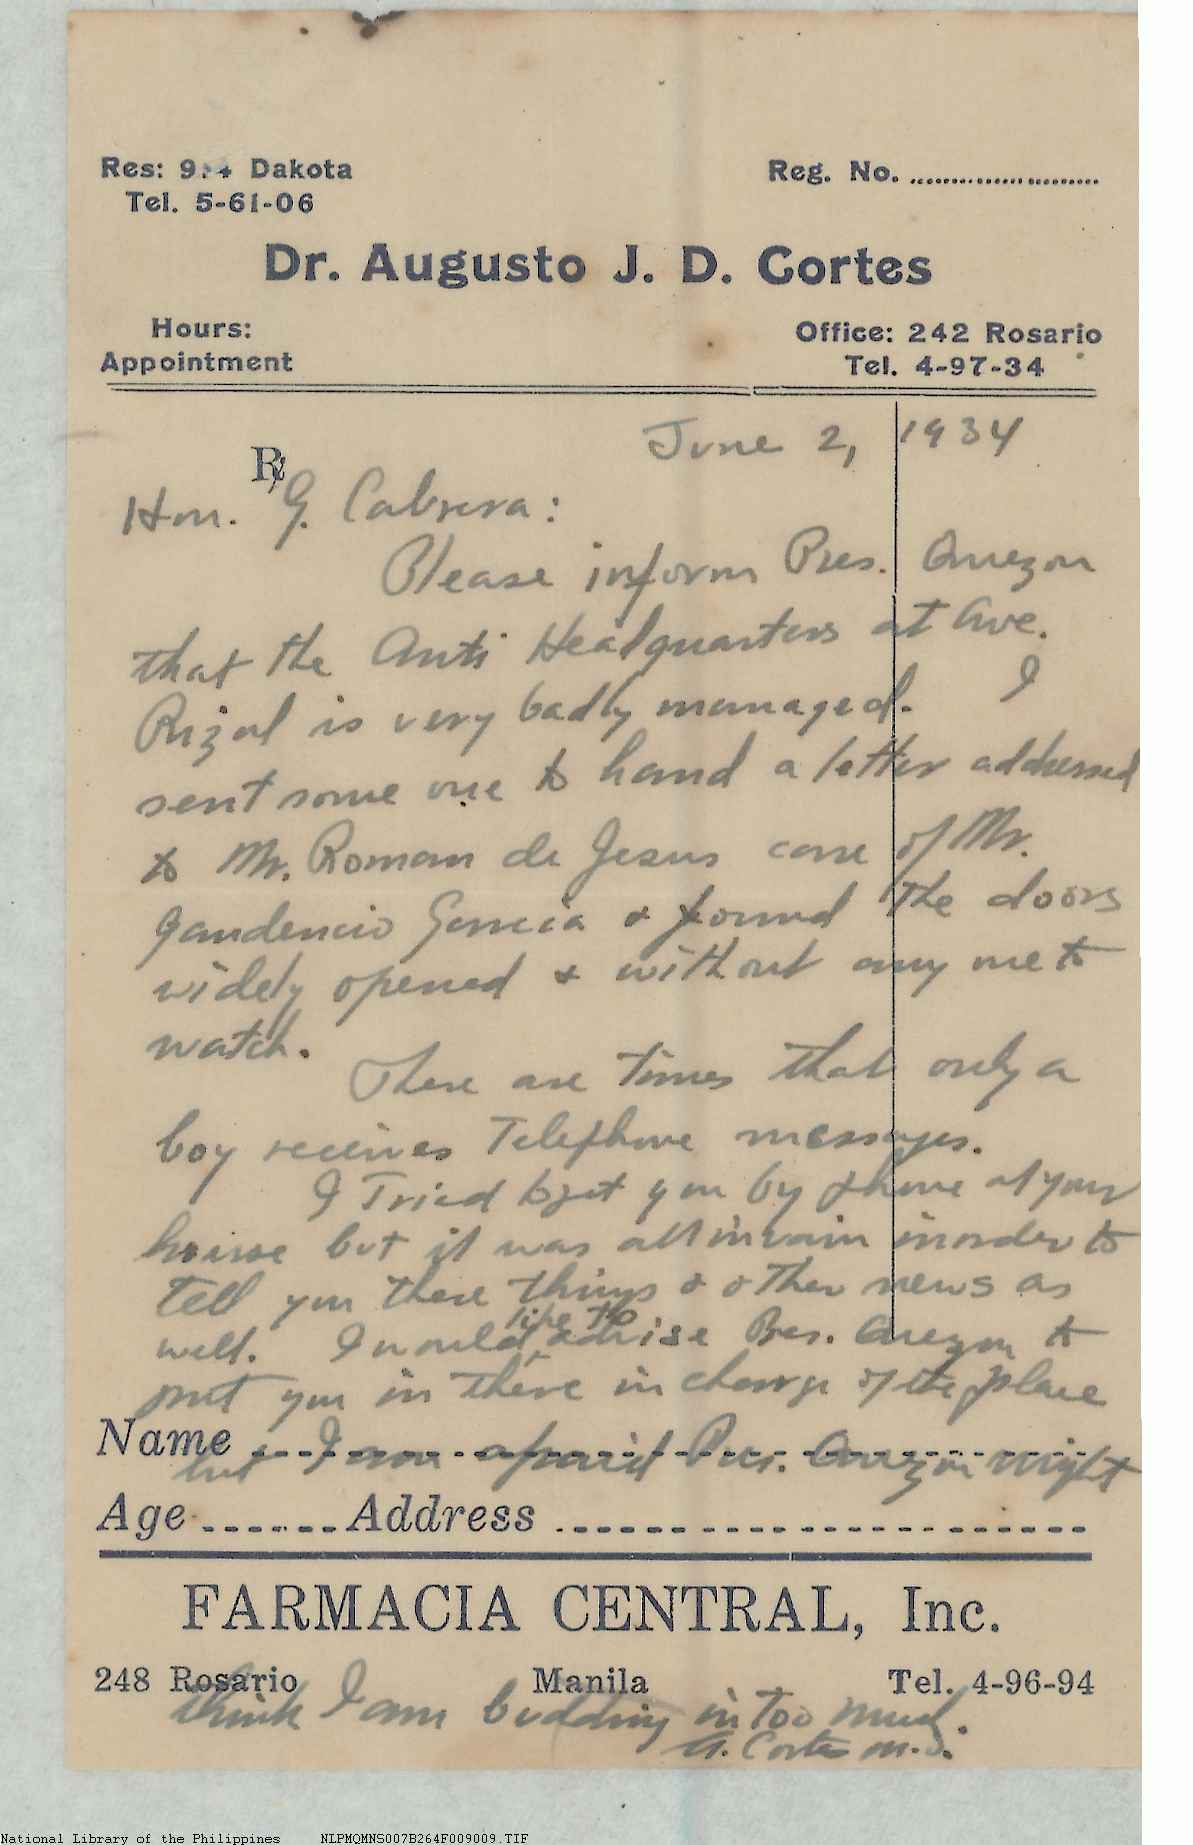 Res: 9 4 Dakota
Reg. No. ........................
Tel. 5-61-06
Dr. Augusto J. D. Cortes
Hours:
Appointment
Office: 242 Rosario
Tel. 4-97-34
June 2, 1934
Rx
Hon. G. Cabrera:
Please inform Pres. Quezon
that the Anti Headquarters at Ave.
Rizal is very badly managed. I
sent some one to hand a letter addressed
to Mr. Roman de Jesus care of Mr.
Gaudencio Garcia & found the doors
widely opened & without any one to
watch.
There are times that only a
boy receives telephone messages.
I tried to get you by phone at your
house but it was all in vain in order to
tell you these things & other news as
well. I would like to advise Pres. Quezon to
put you in there in charge of the place
Name
but I am afraid Pres. Quezon might
Age ....... Address .......................
FARMACIA CENTRAL, Inc.
248 Rosario Manila Tel. 4-96-94
think I am budding in too much.
A. Cortes M.D.
National Library of the Philippines NLPMQMNS007B264F009009.TIF